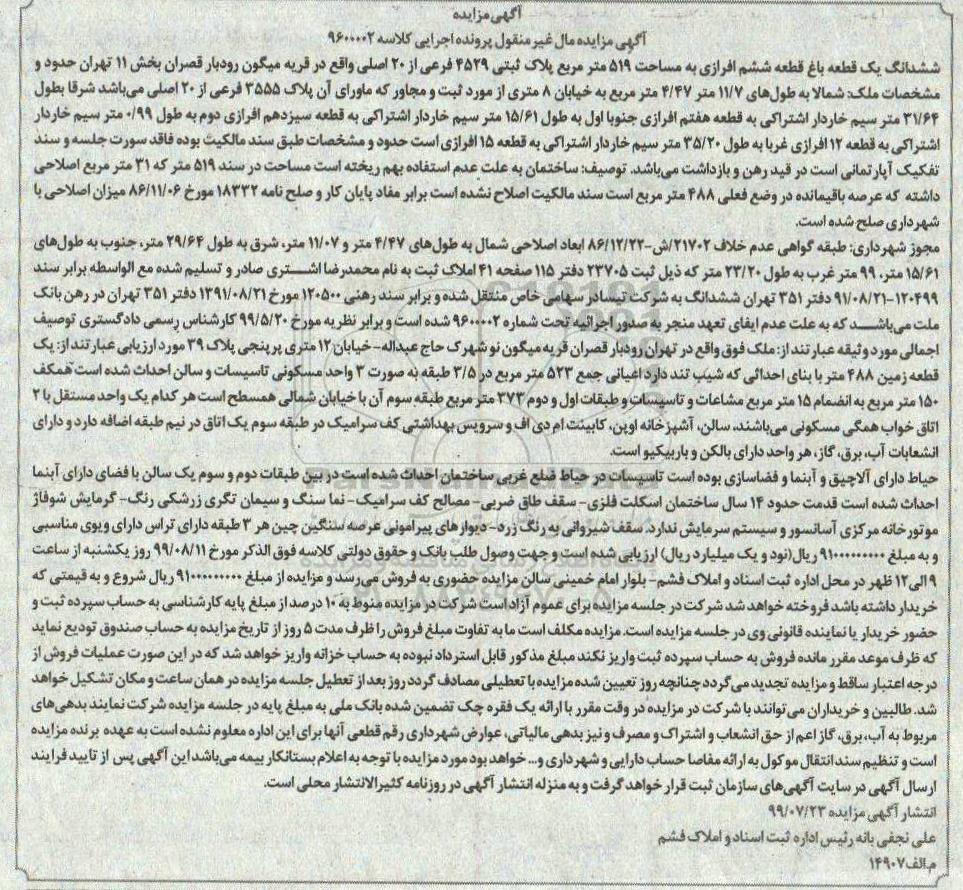 آگهی مزایده
آگهی مزایده مال غیر منقول پرونده اجرایی کلاسه ۹۶۰۰۰۰۲
ششدانگ یک قطعه باغ قطعه ششم افرازی به مساحت ۵۱۹ متر مربع پلاک ثبتی ۴۵۲۹ فرعی از ۲۰ اصلی واقع در قریه میگون رودبار قصران بخش ۱۱ تهران حدود و
مشخصات ملک: شمالا به طول‌های ۱۱/۷ متر ۴/۴۷ متر مربع به خیابان ۸ متری از مورد ثبت و مجاور که ماورای آن پلاک ۳۵۵۵ فرعی از ۲۰ اصلی می‌باشد شرقا بطول
۳۱/۶۴ متر سیم خاردار اشتراکی به قطعه هفتم افرازی جنوبا اول به طول ۱۵/۶۱ متر سیم خاردار اشتراکی به قطعه سیزدهم افرازی دوم به طول ۰/۹۹ متر سیم خاردار
اشتراکی به قطعه ۱۲ افرازی غربا به طول ۳۵/۲۰ متر سیم خاردار اشتراکی به قطعه ۱۵ افرازی است حدود و مشخصات طبق سند مالکیت بوده فاقد سورت جلسه و سند
تفکیک آپارتمانی است در قید رهن و بازداشت می‌باشد. توصیف: ساختمان به علت عدم استفاده بهم ریخته است مساحت در سند ۵۱۹ متر که ۳۱ متر مربع اصلاحی
داشته که عرصه باقیمانده در وضع فعلی ۴۸۸ متر مربع است سند مالکیت اصلاح نشده است برابر مفاد پایان کار و صلح نامه ۱۸۳۳۲ مورخ ۸۶/۱۱/۰۶ میزان اصلاحی با
شهرداری صلح شده است.
مجوز شهرداری: طبقه گواهی عدم خلاف ۲۱۷۰۲/ش-۸۶/۱۲/۲۲ ابعاد اصلاحی شمال به طول‌های ۴/۴۷ متر و ۱۱/۰۷ متر، شرق به طول ۲۹/۶۴ متر، جنوب به طول‌های
۱۵/۶۱ متر، ۹۹ متر غرب به طول ۲۳/۲۰ متر که ذیل ثبت ۲۳۷۰۵ دفتر ۱۱۵ صفحه ۴۱ املاک ثبت به نام محمدرضا اشتری صادر و تسلیم شده مع الواسطه برابر سند
۱۲۰۴۹۹-۹۱/۰۸/۲۱ دفتر ۳۵۱ تهران ششدانگ به شرکت تیسادر سهامی خاص منتقل شده و برابر سند رهنی ۱۲۰۵۰۰ مورخ ۱۳۹۱/۰۸/۲۱ دفتر ۳۵۱ تهران در رهن بانک
ملت می‌باشد که به علت عدم ایفای تعهد منجر به صدور اجرائیه تحت شماره ۹۶۰۰۰۰۲ شده است و برابر نظریه مورخ ۹۹/۵/۲۰ کارشناس رسمی دادگستری توصیف
اجمالی مورد وثیقه عبارتند از: ملک فوق واقع در تهران رودبار قصران قریه میگون نو شهرک حاج عبداله- خیابان ۱۲ متری پرنجی پلاک ۳۹ مورد ارزیابی عبارتند از: یک
قطعه زمین ۴۸۸ متر با بنای احداثی که شیب تند دارد اعیانی جمع ۵۲۳ متر مربع در ۳/۵ طبقه به صورت ۳ واحد مسکونی تاسیسات و سالن احداث شده است همکف
۱۵۰ متر مربع به انضمام ۱۵ متر مربع مشاعات و تاسیسات و طبقات اول و دوم ۳۷۳ متر مربع طبقه سوم آن با خیابان شمالی همسطح است هر کدام یک واحد مستقل با ۲
اتاق خواب همگی مسکونی می‌باشند، سالن، آشپزخانه اوپن، کابینت ام دی اف و سرویس بهداشتی کف سرامیک در طبقه سوم یک اتاق در نیم طبقه اضافه دارد و دارای
انشعابات آب، برق، گاز، هر واحد دارای بالکن و باربیکیو است.
حیاط دارای آلاچیق و آبنما و فضاسازی بوده است تاسیسات در حیاط ضلع غربی ساختمان احداث شده است در بین طبقات دوم و سوم یک سالن با فضای دارای آبنما
احداث شده است قدمت حدود ۱۴ سال ساختمان اسکلت فلزی- سقف طاق ضربی- مصالح کف سرامیک- نما سنگ و سیمان تگری زرشکی رنگ- گرمایش شوفاژ
موتورخانه مرکزی آسانسور و سیستم سرمایش ندارد. سقف شیروانی به رنگ زرد- دیوارهای پیرامونی عرصه سنگین چین هر ۳ طبقه دارای تراس دارای ویوی مناسبی
و به مبلغ ۹۱۰۰۰۰۰۰۰۰۰ ریال(نود و یک میلیارد ریال) ارزیابی شده است و جهت وصول طلب بانک و حقوق دولتی کلاسه فوق الذکر مورخ ۹۹/۰۸/۱۱ روز یکشنبه از ساعت
۹ الی ۱۲ ظهر در محل اداره ثبت اسناد و املاک فشم- بلوار امام خمینی سالن مزایده حضوری به فروش می‌رسد و مزایده از مبلغ ۹۱۰۰۰۰۰۰۰۰۰ ریال شروع و به قیمتی که
خریدار داشته باشد فروخته خواهد شد شرکت در جلسه مزایده برای عموم آزاد است شرکت در مزایده منوط به ۱۰ درصد از مبلغ پایه کارشناسی به حساب سپرده ثبت و
حضور خریدار یا نماینده قانونی وی در جلسه مزایده است. مزایده مکلف است ما به تفاوت مبلغ فروش را ظرف مدت ۵ روز از تاریخ مزایده به حساب صندوق تودیع نماید
که ظرف موعد مقرر مانده فروش به حساب سپرده ثبت واریز نکند مبلغ مذکور قابل استرداد نبوده به حساب خزانه واریز خواهد شد که در این صورت عملیات فروش از
درجه اعتبار ساقط و مزایده تجدید می‌گردد چنانچه روز تعیین شده مزایده با تعطیلی مصادف گردد روز بعد از تعطیل جلسه مزایده در همان ساعت و مکان تشکیل خواهد
شد. طالبین و خریداران می‌توانند با شرکت در مزایده در وقت مقرر با ارائه یک فقره چک تضمین شده بانک ملی به مبلغ پایه در جلسه مزایده شرکت نمایند بدهی‌های
مربوط به آب، برق، گاز اعم از حق انشعاب و اشتراک و مصرف و نیز بدهی مالیاتی، عوارض شهرداری رقم قطعی آنها برای این اداره معلوم نشده است به عهده برنده مزایده
است و تنظیم سند انتقال موکول به ارائه مفاصا حساب دارایی و شهرداری و... خواهد بود مورد مزایده با توجه به اعلام بستانکار بیمه می‌باشد این آگهی پس از تایید فرایند
ارسال آگهی در سایت آگهی‌های سازمان ثبت قرار خواهد گرفت و به منزله انتشار آگهی در روزنامه کثیرالانتشار محلی است.
انتشار آگهی مزایده ۹۹/۰۷/۲۳
علی نجفی بانه رئیس اداره ثبت اسناد و املاک فشم
م.الف ۱۴۹۰۷